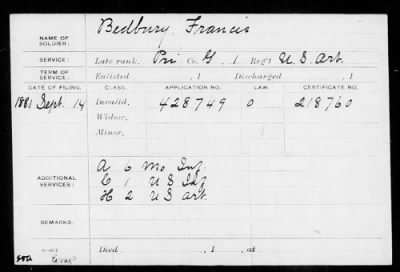 NAME OF SOLDIER: Bedbury, Francis
SERVICE: Late rank, Pri Co. G, 1 Reg't U.S. Art.
TERM OF SERVICE: Enlisted , 1 Discharged , 1
DATE OF FILING. CLASS. APPLICATION NO. LAW. CERTIFICATE NO.
1881 Sept. 14 Invalid, 428749 0 218760
Widow,
Minor,
ADDITIONAL SERVICES: A 6 Mo Inf.
C 1 U S Inf
H 2 U S Art.
REMARKS:
Died , 1 , at